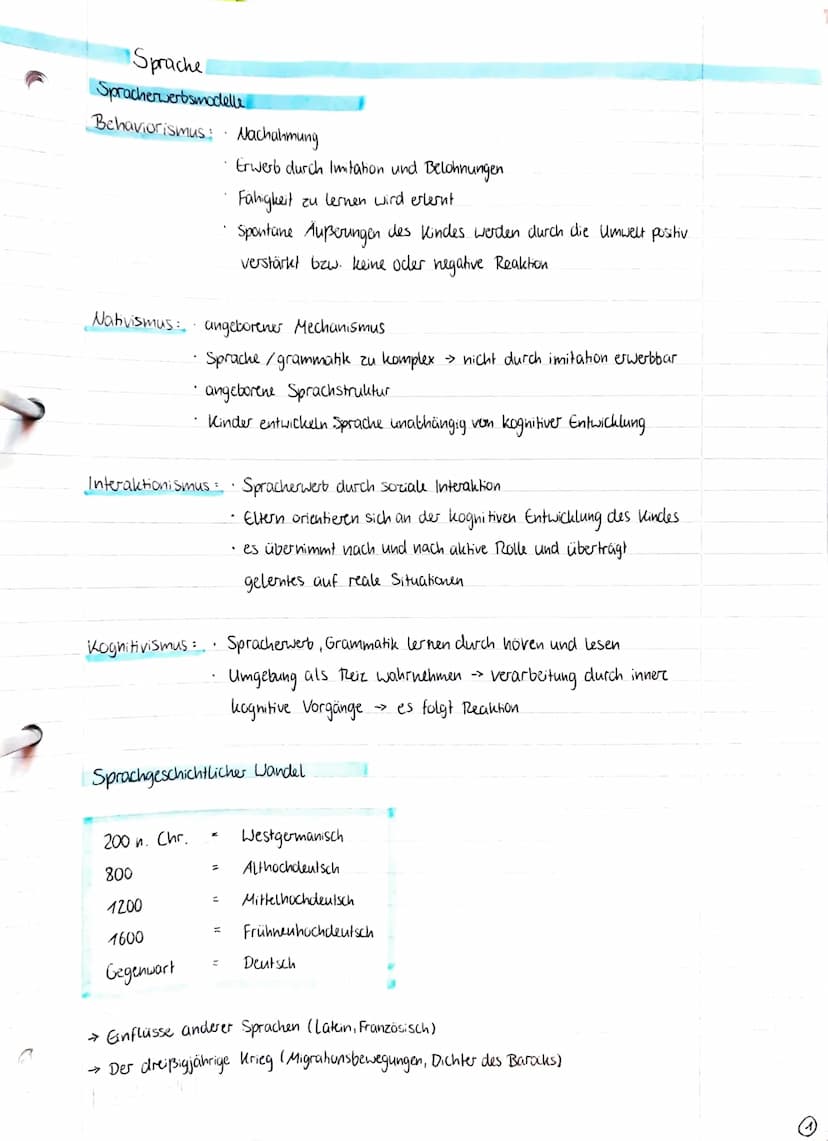 Sprache
Spracherwerbsmodelle
Behaviorismus: · Nachahmung
· Erwerb durch Imitation und Belohnungen
· Fähigkeit zu lernen wird erlernt
· Spontane Äußerungen des Kindes werden durch die Umwelt positiv
verstärkt bzw. keine oder negative Reaktion
Nativismus: · angeborener Mechanismus
· Sprache / grammatik zu komplex → nicht durch imitation erwerbbar
· angeborene Sprachstruktur
· Kinder entwickeln Sprache unabhängig von kognitiver Entwicklung
Interaktionismus: · Spracherwerb durch soziale Interaktion
· Eltern orientieren sich an der kognitiven Entwicklung des Kindes
· es übernimmt nach und nach aktive Rolle und überträgt
gelerntes auf reale Situationen
Kognitivismus: · Spracherwerb, Grammatik lernen durch hören und lesen
· Umgebung als Reiz wahrnehmen → verarbeitung durch innere
kognitive Vorgänge → es folgt Reaktion
Sprachgeschichtlicher Wandel
200 n. Chr. = Westgermanisch
800 = Althochdeutsch
1200 = Mittelhochdeutsch
1600 = Frühneuhochdeutsch
Gegenwart = Deutsch
→ Einflüsse anderer Sprachen (Latein, Französisch)
→ Der dreißigjährige Krieg (Migrationsbewegungen, Dichter des Barocks)
1